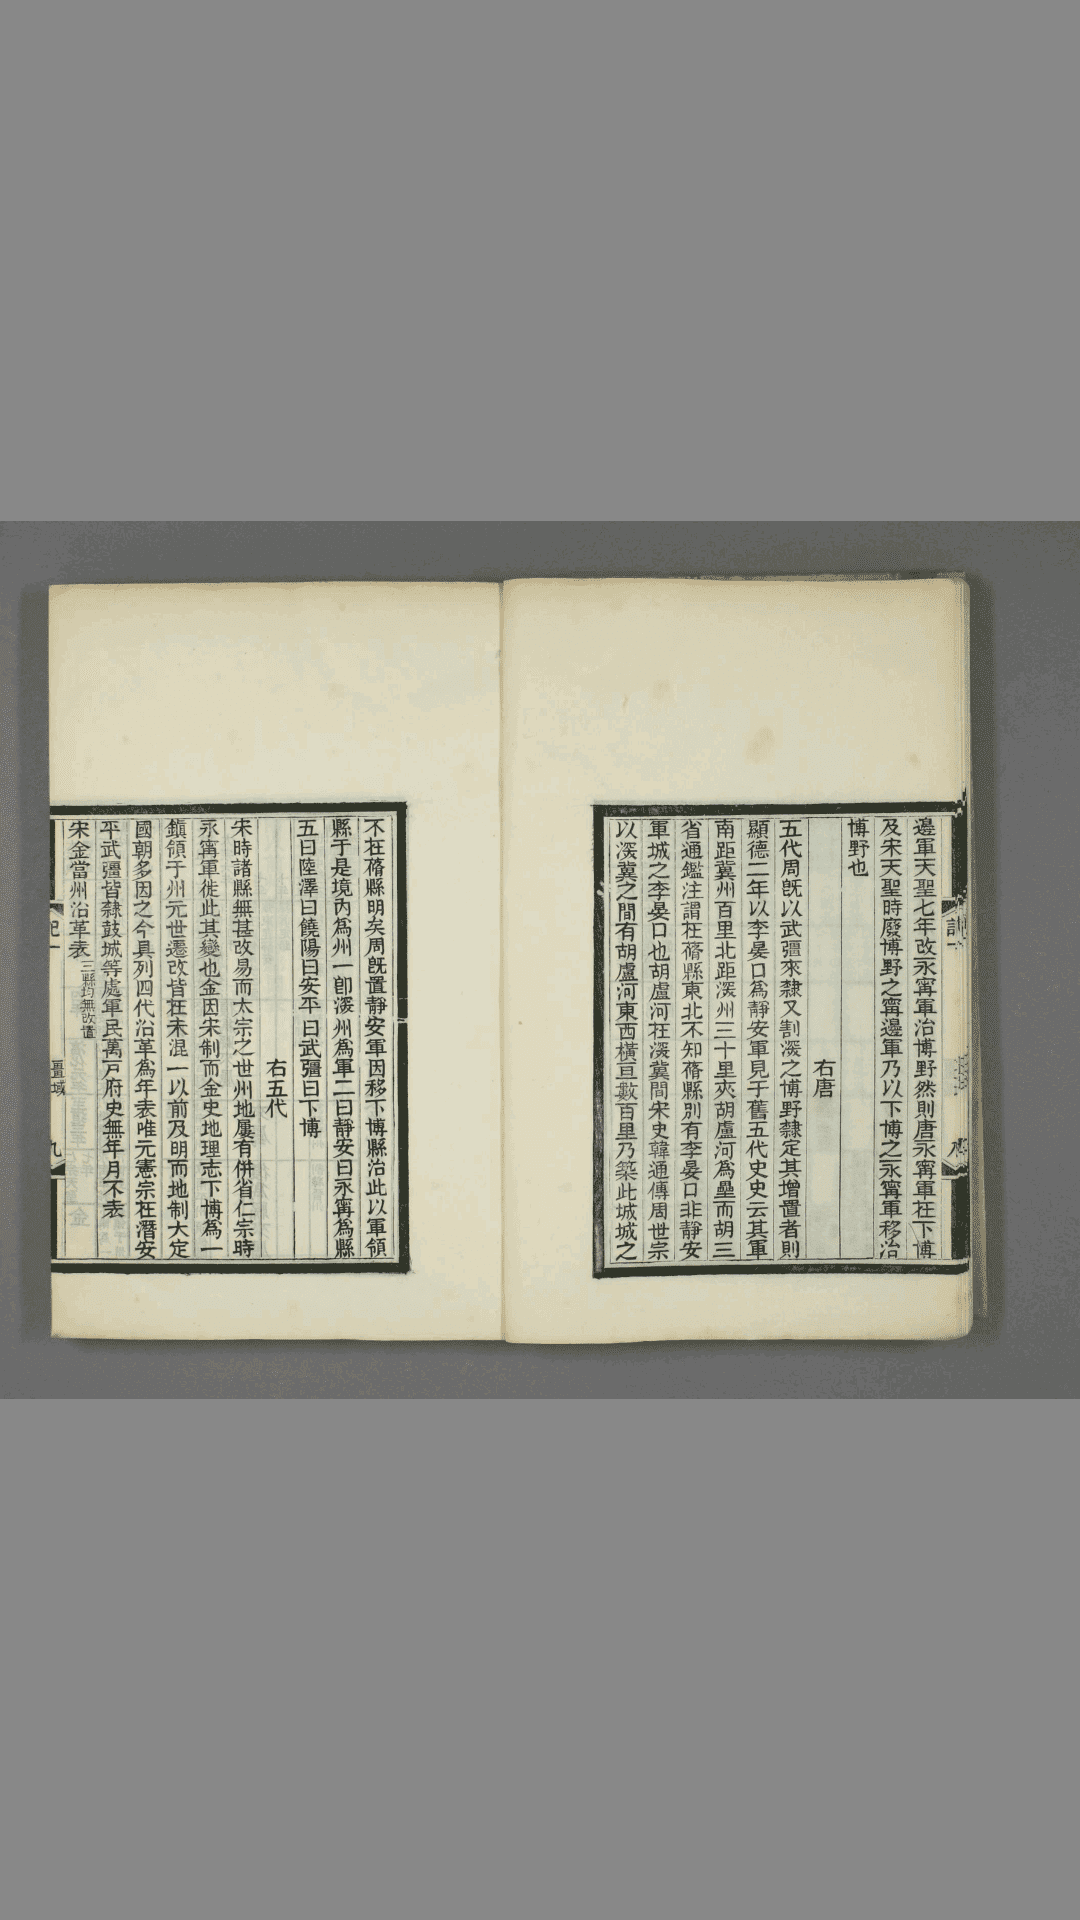 邊軍天聖七年改永甯軍治博野然則唐永甯軍在下博
及宋天聖時廢博野之甯邊軍乃以下博之永甯軍移治
博野也
右唐
五代周旣以武彊來隸又割深之博野隸定其增置者則
顯德二年以李晏口爲靜安軍見于舊五代史史云其軍
南距冀州百里北距深州三十里夾胡盧河爲壘而胡三
省通鑑注謂在蓨縣東北不知蓨縣別有李晏口非靜安
軍城之李晏口也胡盧河在深冀間宋史韓通傳周世宗
以深冀之間有胡盧河東西橫亘數百里乃築此城城之
不在蓨縣明矣周旣置靜安軍因移下博縣治此以軍領
縣于是境內爲州一卽深州爲軍二曰靜安曰永甯爲縣
五曰陸澤曰饒陽曰安平曰武彊曰下博
右五代
宋時諸縣無甚改易而太宗之世州地屢有併省仁宗時
永甯軍徙此其變也金因宋制而金史地理志下博爲一
鎮領于州元世遷改皆在未混一以前及明而地制大定
國朝多因之今具列四代沿革爲年表唯元憲宗在潛安
平武彊皆隸鼓城等處軍民萬戶府史無年月不表
宋金當州沿革表 三縣均無改置
記一
疆域
九